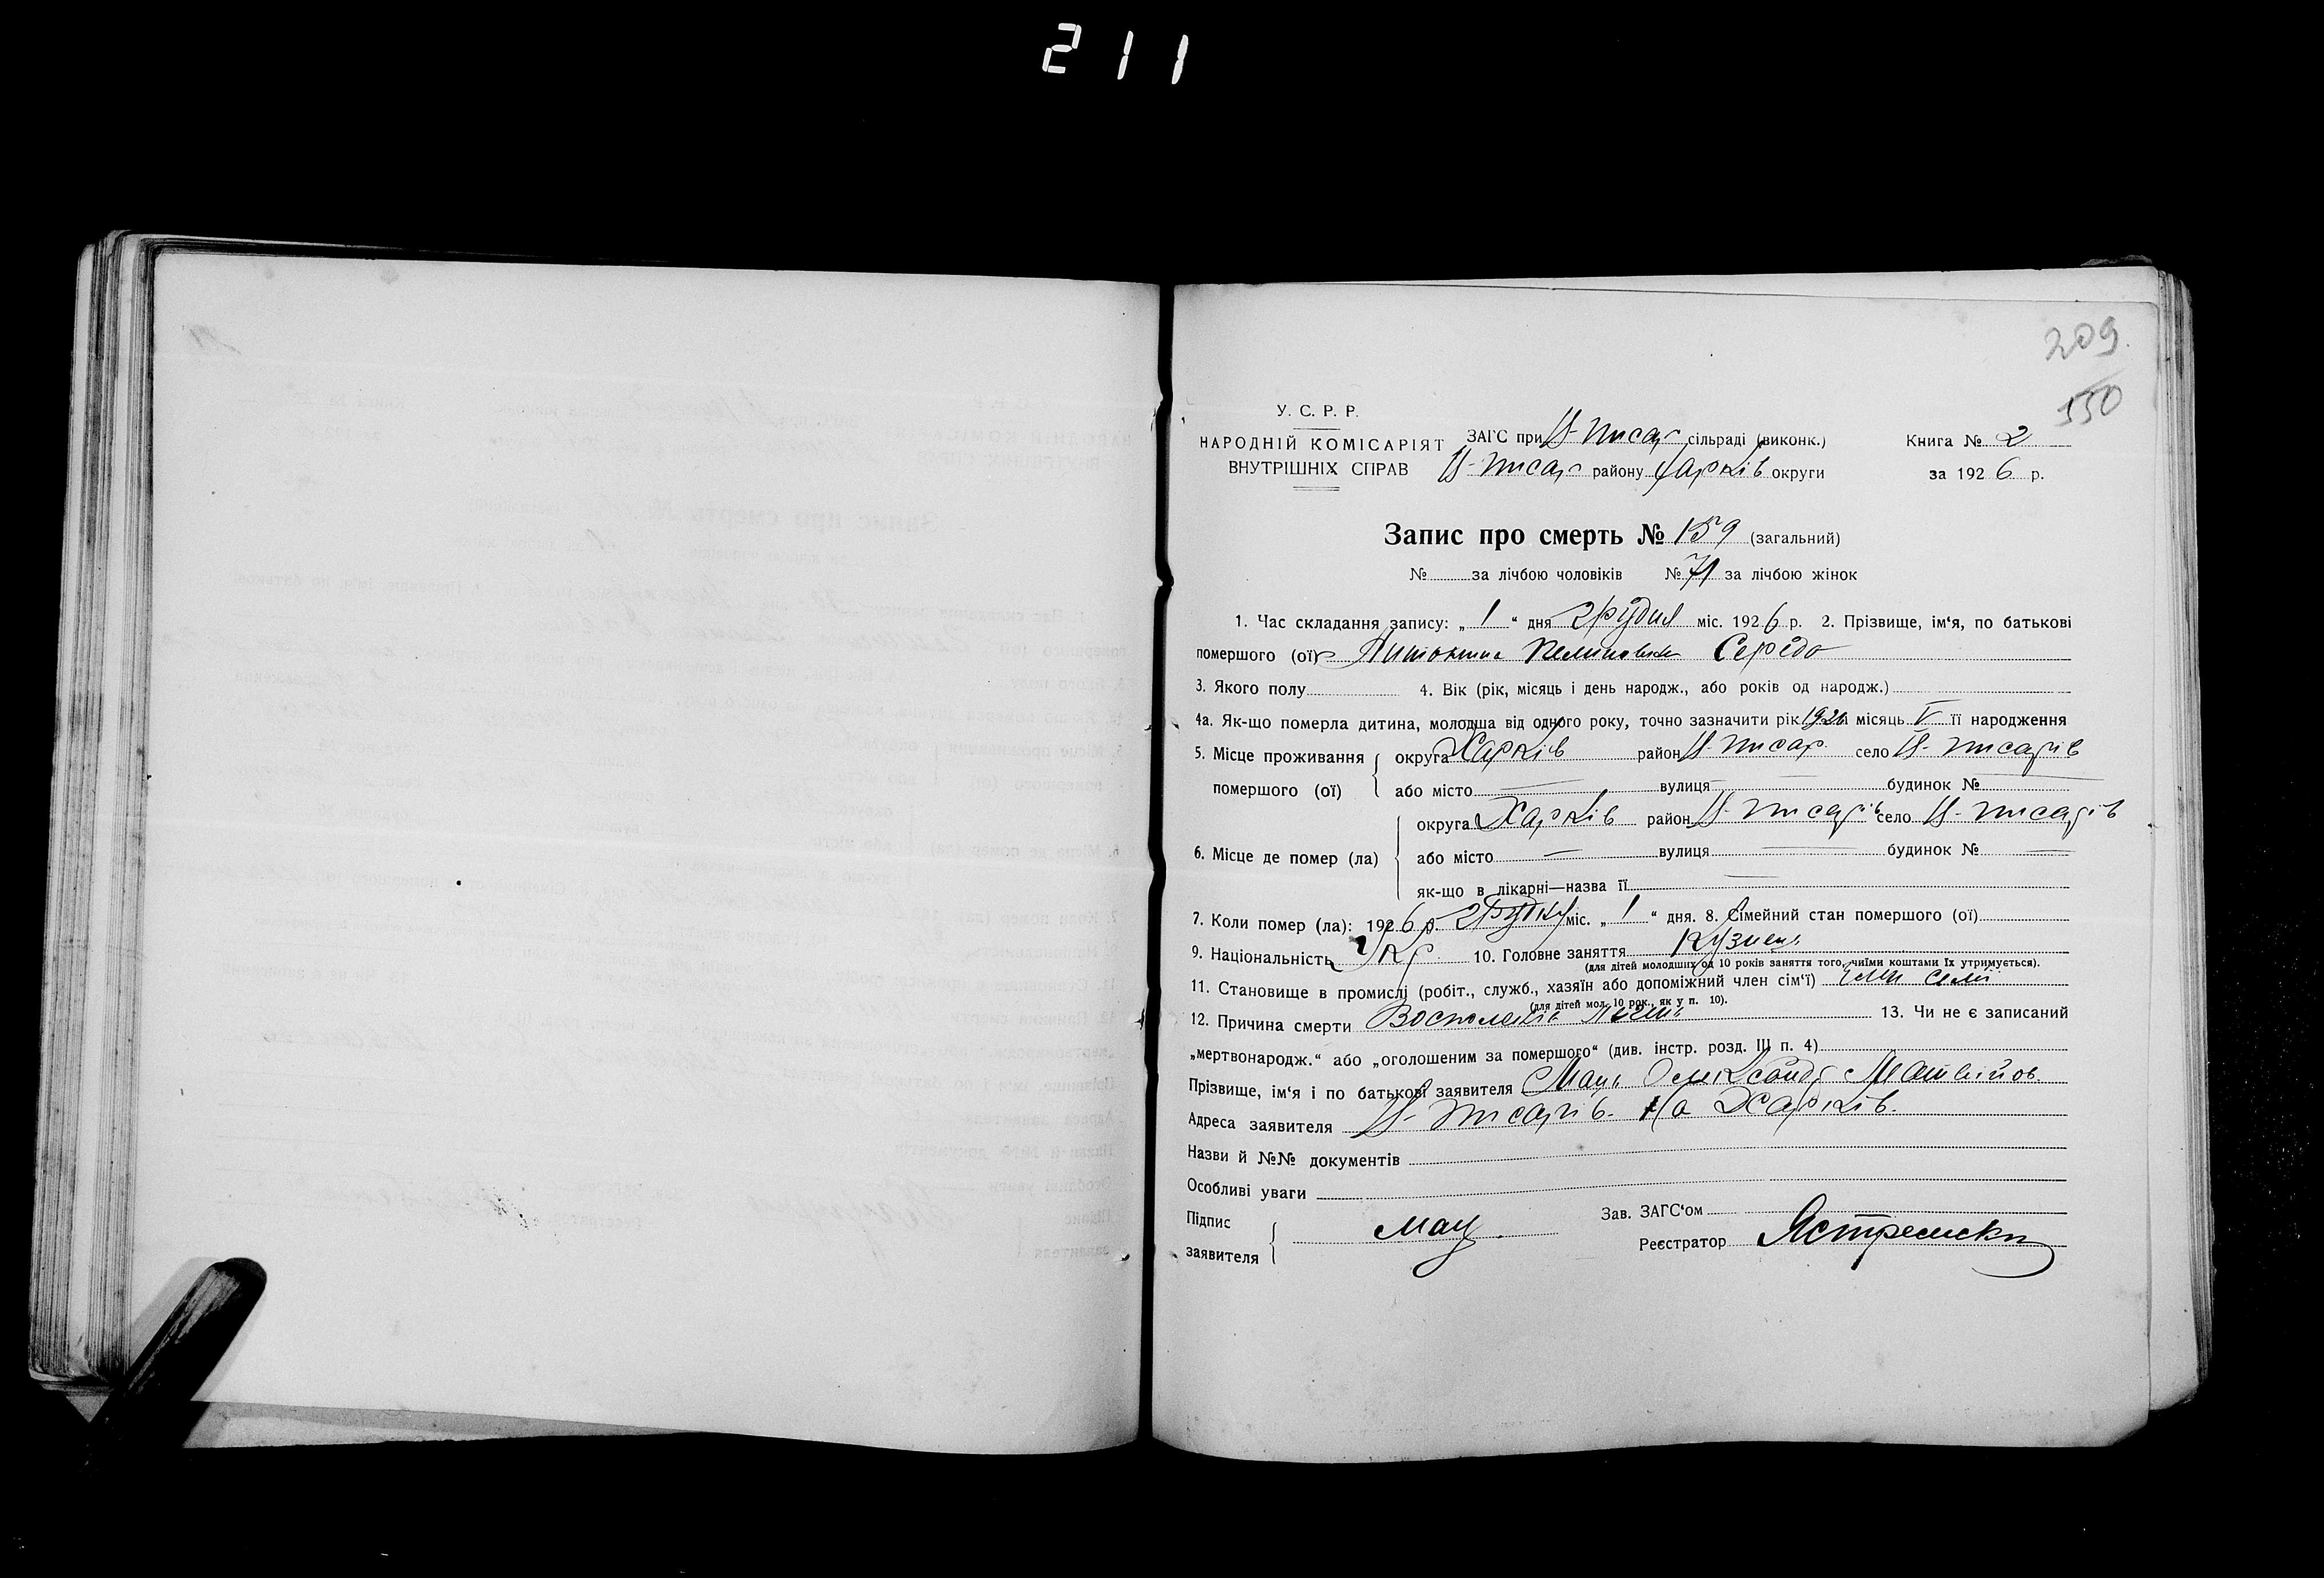 211
209
550
У. С. Р. Р.
НАРОДНІЙ КОМІСАРІЯТ
ВНУТРІШНІХ СПРАВ
ЗАГС при Н-Писар сільраді (виконк.)
Н-Писар району Харків округи
Книга № 2
за 1926 р.
Запис про смерть № 159 (загальний)
№ за лічбою чоловіків № 71 за лічбою жінок
1. Час складання запису: „1“ дня Грудня міс. 1926 р. 2. Прізвище, ім‘я, по батькові
помершого (ої) Антонина Середа
3. Якого полу 4. Вік (рік, місяць і день народж., або років од народж.)
4а. Як-що померла дитина, молодша від одного року, точно зазначити рік 1926 місяць V її народження
5. Місце проживання помершого (ої) округа Харків район Н-Писар село Н-Писарів
або місто — вулиця — будинок № —
6. Місце де помер (ла) округа Харків район Н-Писарів село Н-Писарів
або місто — вулиця — будинок № —
як-що в лікарні—назва її —
7. Коли помер (ла): 1926 р. Грудня міс. „1“ дня. 8. Сімейний стан помершого (ої)
9. Національність Укр. 10. Головне заняття Кузнець
(для дітей молодших од 10 років заняття того, чиїми коштами їх утримується).
11. Становище в промислі (робіт., служб., хазяїн або допоміжний член сім‘ї) член семії
(для дітей мол. 10 рок., як у п. 10).
12. Причина смерти 13. Чи не є записаний
„мертвонародж.“ або „оголошеним за помершого“ (див. інстр. розд. III п. 4)
Прізвище, ім‘я і по батькові заявителя Мац Олександр Матвійов.
Адреса заявителя Н-Писарів. На Харків.
Назви й №№ документів
Особливі уваги
Підпис
заявителя Мац
Зав. ЗАГС‘ом
Реєстратор Ястремски